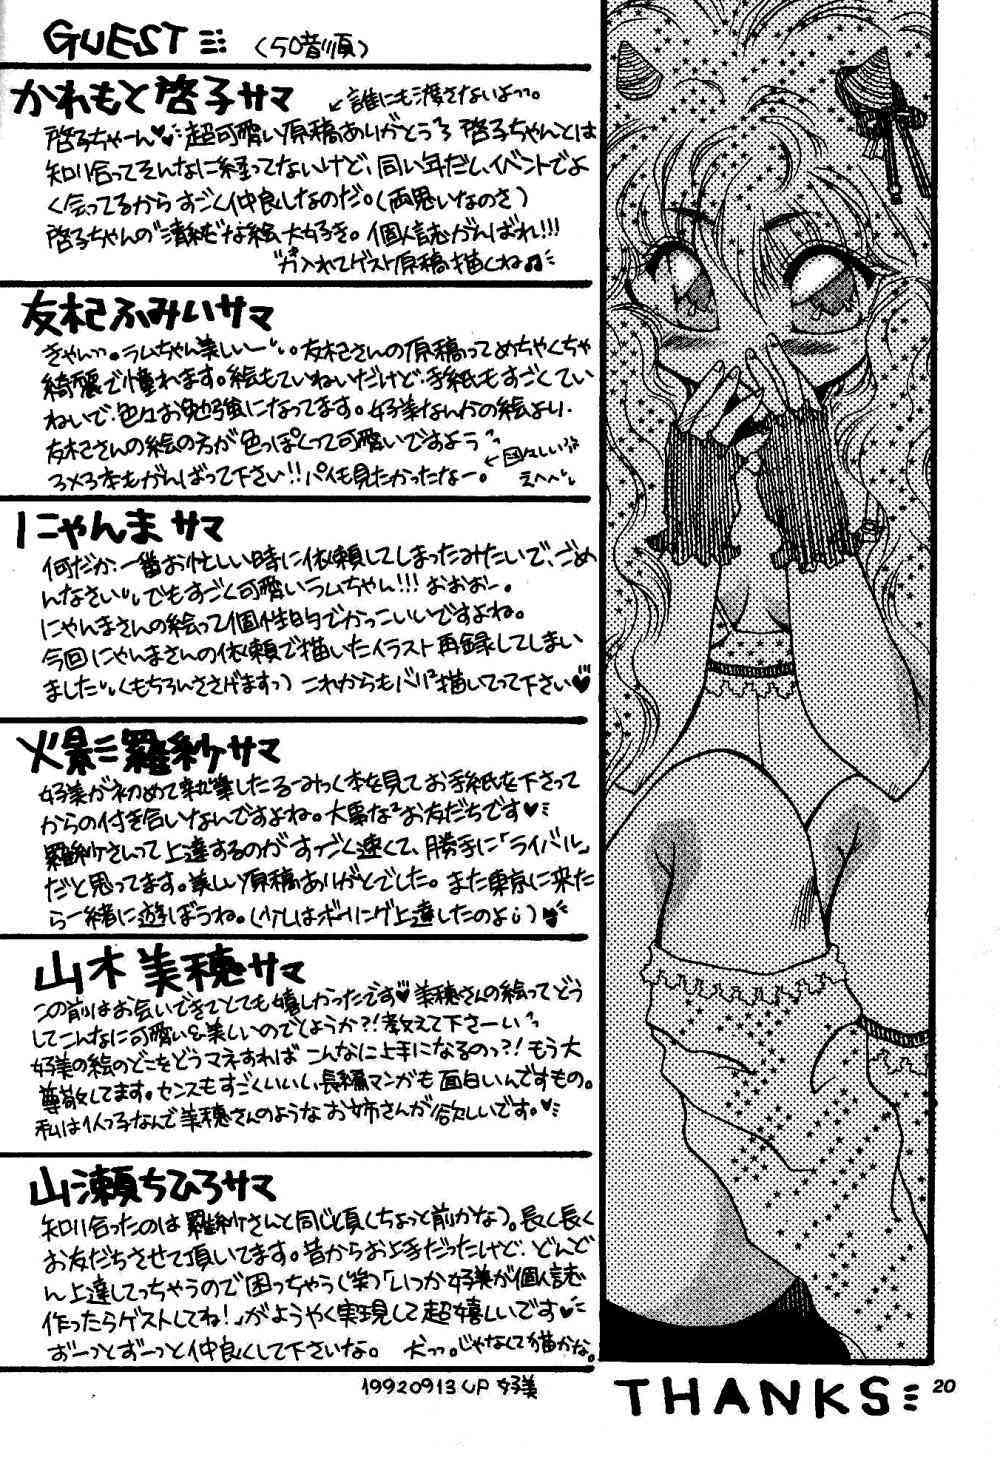 GUEST
(50音順)
かわもと啓子サマ
←誰にも渡さないよっ。
啓子ちゃーん♥超可愛い原稿ありがとう 啓子ちゃんとは
知り合ってそんなに経ってないけど、同い年だし、イベントでよ
く会ってるから すごく仲良しなのだ。(両思いなのさ)
啓子ちゃんの"清純"な絵 大好き。個人誌がんばれ!!!
入れてゲスト原稿描くね♫
友杞ふみいサマ
きゃんっ。ラムちゃん美しいー 友杞さんの原稿ってめちゃくちゃ
綺麗で憧れます。絵もていねいだけど、手紙もすごくてい
ねいで、色々お勉強になってます。好美なんかの絵より、
友杞さんの絵の方が色っぽくって可愛いですよう
ろメろ本もがんばって下さい!!パイも見たかったなー。
えへへ
にゃんまサマ
何だか、一番お忙しい時に依頼してしまったみたいで、ごめ
んなさい でもすごく可愛いラムちゃん!!!おおおー。
にゃんまさんの絵って個性的でかっこいいですよね。
今回にゃんまさんの依頼で描いたイラスト再録してしまい
ました(もちろんささげますっ)これからもバリバリ描いてって下さい♥
火影羅紗サマ
好美が初めて執筆したるーみっく本を見てお手紙を下さって
からの付き合いなんですよね。大事な お友だちです♥
羅紗さんって上達するのがすっごく速くて、勝手に「ライバル」
だと思ってます。美しい原稿ありがとでした。また東京に来た
ら一緒に遊ぼうね。(少しはボーリング上達したのよ)
山木美穂サマ
この前はお会いできてとても嬉しかったです♥美穂さんの絵ってどう
してこんなに可愛い&美しいのでしょうか?!教えて下さーい
好美の絵のどこをどうマネすれば こんなに上手になるのっ?!もう大
尊敬してます。センスもすごくいいし、長編マンガも面白いんですもの。
私は1人っ子なんで美穂さんのような お姉さんが欲しいです。♥
山瀬ちひろサマ
知り合ったのは羅紗さんと同じ頃(ちょっと前かな)。長く長く
お友だちさせて頂いてます。昔からお上手だったけど、どんど
ん上達してっちゃうので困っちゃう(笑)「いつか好美が個人誌
作ったらゲストしてね!」がようやく実現して超嬉しいです♥
ずーっとずーっと仲良くして下さいな。 犬っ。じゃなくて猫かな。
19920913 UP 好美
THANKS
20